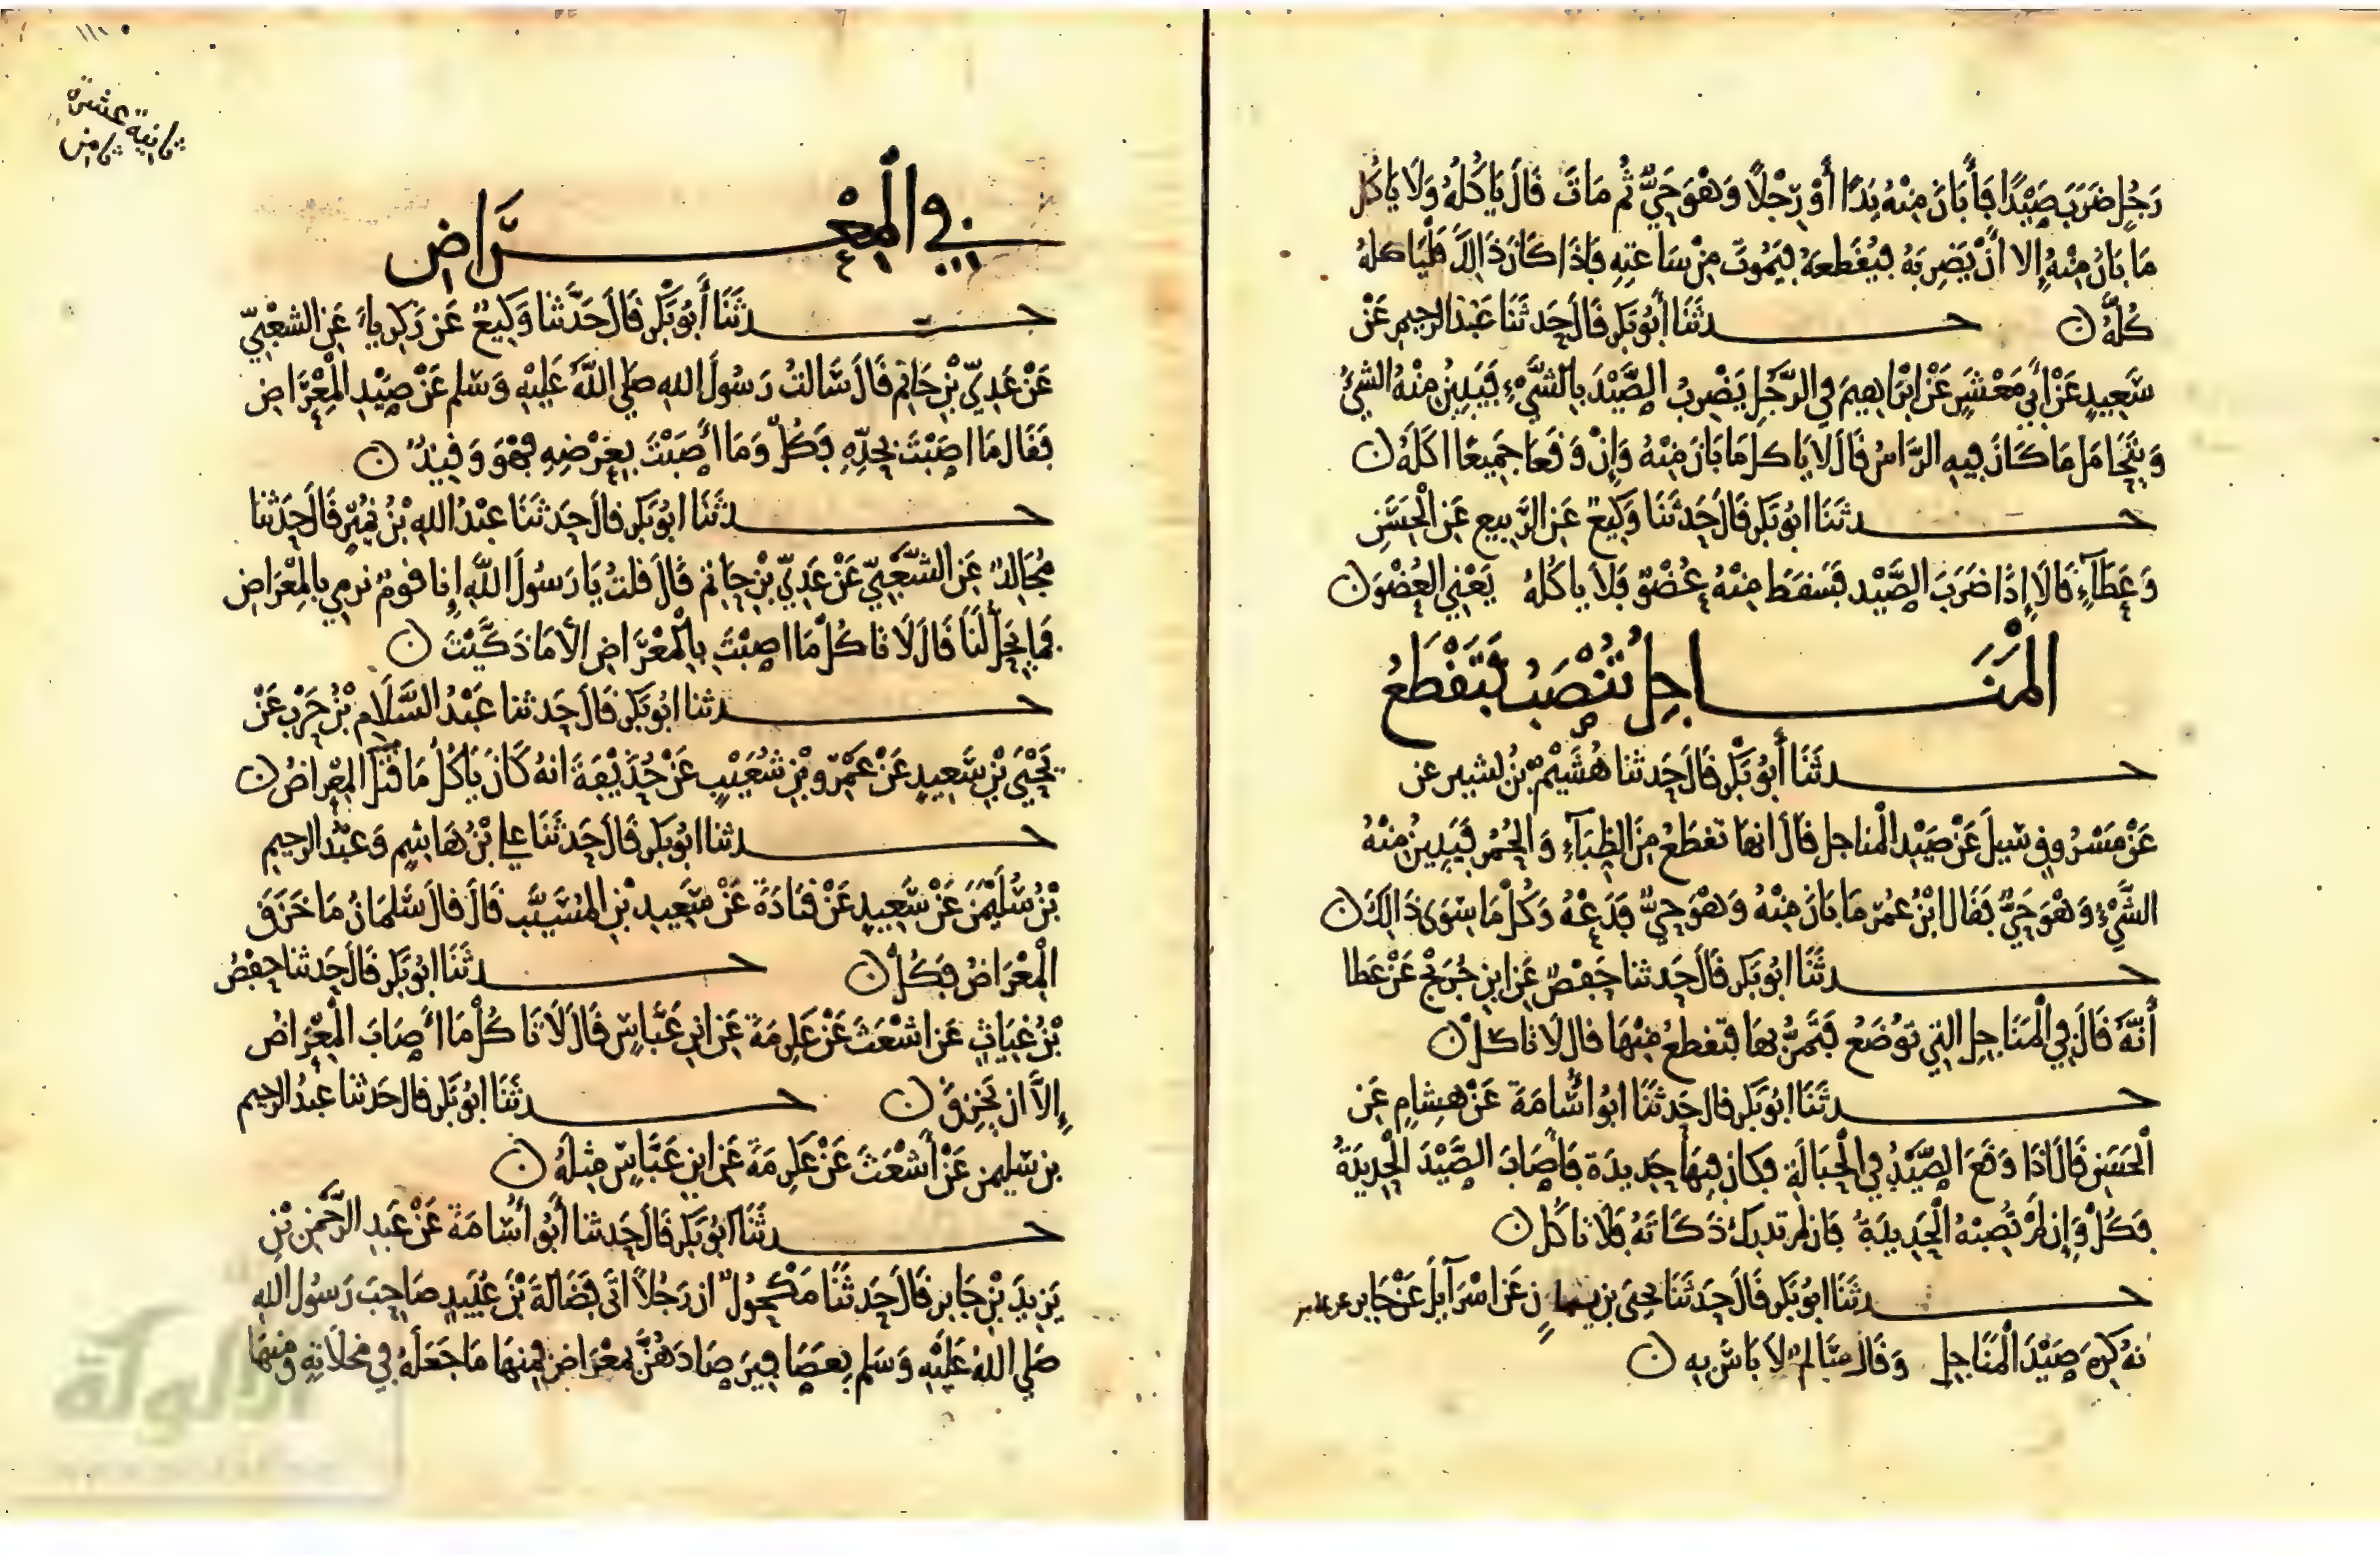 رَجُلٍ ضَرَبَ صَيْدًا فَأَبَانَ مِنْهُ يَدًا أَوْ رِجْلًا وَهْوَ حَيٌّ ثُمَّ مَاتَ قَالَ يَاكُلُهُ وَلَا يَاكُل
مَا بَانَ مِنْهُ إِلا أَنْ يَضْرِبَهُ فَيَقْطَعَهُ فَيَمُوتَ مِنْ سَاعَتِهِ فَإذَا كَانَ ذَالِكَ فَلْيَاكلهُ
كُلَّهُ ن حدثَنَا أَبُو بَكر قَالَ حَدثَنَا عَبْد الرحِيمِ عَنْ
سَعِيدٍ عَنْ أَبِي مَعْشَرٍ عَنْ ابْرَاهِيمَ فِي الرَّجُلِ يَضْرِبُ الصَّيْدَ بِالشَّيْءِ فَيَبِينُ مِنْهُ الشيْءُ
وَيَتَحَامَلُ مَا كَانَ فِيهِ الرَّاسُ قَالَ لا يَاكل مَا بَانَ مِنْهُ وَإِنْ وَقَعَا جَمِيعًا اكَلَهُ ن
حدثَنَا ابُو بَكر قَالَ حَدثَنَا وَكِيعٌ عَنِ الرَّبِيعِ عَنِ الْحَسَنِ
وَعَطَآءٍ قَالَا إِذَا ضَرَبَ الصَّيْد فَسَقَطَ مِنْهُ عُضْوٌ فَلَا يَاكُلهُ يَعْنِي العُضْوَ ن
الْمَنَاجِلُ تُنْصَبُ فَتَقْطَعُ
حدثَنَا أَبُو بَكْر قَالَ حَدثنا هُشَيْمٌ بنُ بشير عن
عَنْ مَسْرُوقٍ سُيلَ عَنْ صَيْد الْمناجل قالَ انها تقطَع مِنَ الظِبَآءِ وَالحُمُر فَيَبِينُ مِنْهُ
الشَّيْءُ وَهْوَ حَيٌّ فَقَالَ ابْنُ عُمَر مَا بَانَ مِنْهُ وَهْوَ حَيٌّ فَدَعْهُ وَكُلْ مَا سِوَى ذَالِكَ ن
حدثَنَا ابُو بَكر قَالَ حَدثنا حَفصٌ عَنِ ابنِ جُرَيْجٍ عَنْ عَطا
أَنَّهُ قَالَ فِي الْمَنَاجِلِ التِي تُوضَعُ فَتَمُرُّ بهَا فتقطعُ مِنْهَا قَال لَا تاكلْ ن
حدثَنَا ابُو بَكر قَال حَدثَنَا ابُو أُسَامَةَ عَنْ هِشامٍ عَنِ
الْحَسَنِ قَالَ اذَا وَقَعَ الصَّيْدُ فِي الْحِبَالَةِ فكَان فِيهَا حَدِيدَة فَأَصَابَ الصَّيْدَ الْحَدِيدَةُ
فكُلْ وَإِن لَمْ تُصِبْهُ الْحَدِيدَةُ فَإن لم تدرك ذَكَاتَهُ فَلَا تاكُل ن
حدثَنَا ابُو بَكر قَالَ حَدثَنَا يحيَى بن يمان عَن اسْرَآيل عَنْ جَابِر عن عامر
نهُ كَرِهَ صَيْدَ الْمَنَاجِلِ وَقَال سَالِمٌ لَا بَاسَ بِهِ ن
١١٠
ثانية عشرة
ثامن
فِي الْمِعْرَاضِ
حدثَنَا أَبُو بَكْر قَالَ حَدَّثنَا وَكِيعٌ عَن زَكرياءَ عَنِ الشعْبِيِّ
عَنْ عَدِيِّ بْنِ حَاتِم قَالَ سَالتُ رَسُولَ اللهِ صَلي اللَّهُ عَلَيْهِ وَسَلم عَنْ صَيْدِ الْمِعْرَاضِ
فَقَال مَا اصَبْتَ بِحَدِّهِ فَكُلْ وَمَا أَصَبْتَ بِعَرْضِهِ فهْوَ وَقِيذٌ ن
حدثَنَا ابُو بَكر قالَ حَدثَنَا عَبْدُ اللهِ بْنُ نُمَيْرٍ قَالَ حَدثنا
مُجَالِدٌ عَنِ الشَّعْبِيِّ عَنْ عَدِيِّ بْنِ حَاتِم قَالَ قلتُ يَا رَسُولَ اللَّهِ إِنا قومٌ نرمِي بالمِعْرَاضِ
فَمَا يَحِلُّ لَنَا قَالَ لَا تَاكُلْ مَا اصبْتَ بِالْمِعْرَاضِ الا مَا ذَكَّيْتَ ن
حدثنا ابُو بَكر قَالَ حَدثنا عَبْدُ السَّلَام بْنُ حَرْب عَنْ
يَحْيَى بْنِ سَعِيدٍ عَنْ عَمْرو بْنِ شُعَيْبٍ عَنْ حُذَيْفَةَ انهُ كَانَ يَاكُلُ مَا قَتَلَ الْمِعْرَاضُ ن
حدثنا ابُو بَكر قَالَ حَدثَنَا علي بْنُ هَاشِمٍ وَعَبْد الرحِيم
بْنُ سُلَيْمَنَ عَنْ سَعِيدٍ عَنْ قتَادَةَ عَنْ سَعِيدِ بْنِ المُسَيَّبِ قَالَ قالَ سَلمَانُ مَا خَزَقَ
الْمِعْرَاضُ فَكُلْ ن حدثَنَا ابُو بَكر قَالَ حَدثنا حَفْصُ
بْنُ غِيَاثٍ عَن اشْعَثَ عَنْ عكرمَةَ عَنِ ابْنِ عَبَّاسٍ قَالَ لَا تَاكُلْ مَا أَصَابَ الْمِعْرَاضُ
إِلَّا ان يَخْزِقَ ن حدثَنَا ابُو بَكر قَال حَدثنا عَبدُ الرحِيم
بن سليمن عَنْ أَشْعَثَ عَنْ عكرمَةَ عَنِ ابنِ عَبَّاسٍ مِثلَهُ ن
حدثَنَا ابُو بَكر قَالَ حَدثنا أَبُو أُسَامَةَ عَنْ عَبدِ الرَّحْمنِ بْنِ
يَزِيدَ بْنِ جَابِر قَالَ حَدثَنَا مَكْحُولٌ ان رَجُلًا اتَى فَضَالَةَ بْنَ عُبَيدٍ صَاحِبَ رَسُولِ اللهِ
صَلي اللهُ عَلَيْهِ وَسَلم بِعَصَافِيرَ صَادَهُنَّ بمعْرَاضٍ فَمِنهَا مَا جَعَلَهُ فِي مخْلَاتِهِ وَمنهَا
الألوكة